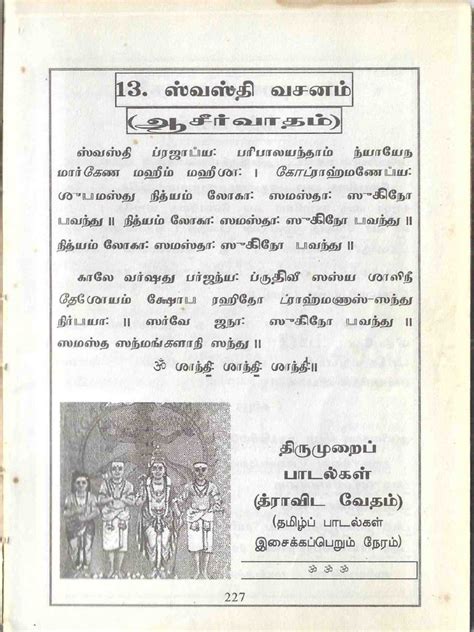 13. ஸ்வஸ்தி வசனம்
(ஆசீர்வாதம்)
ஸ்வஸ்தி ப்ரஜாப்ய: பரிபாலயந்தாம் ந்யாயேந
மார்கேண மஹீம் மஹீஶா: | கோப்ராஹ்மணேப்ய:
ஶுபமஸ்து நித்யம் லோகா: ஸமஸ்தா: ஸுகிநோ
பவந்து || நித்யம் லோகா: ஸமஸ்தா: ஸுகிநோ பவந்து ||
நித்யம் லோகா: ஸமஸ்தா: ஸுகிநோ பவந்து ||
காலே வர்ஷது பர்ஜந்ய: ப்ருதிவீ ஸஸ்ய ஶாலிநீ
தேஶோயம் க்ஷோப ரஹிதோ ப்ராஹ்மணாஸ்-ஸந்து
நிர்பயா: || ஸர்வே ஜநா: ஸுகிநோ பவந்து ||
ஸமஸ்த ஸந்மங்களாநி ஸந்து ||
ௐ ஶாந்தி: ஶாந்தி: ஶாந்தி: ||
திருமுறைப்
பாடல்கள்
(த்ராவிட வேதம்)
(தமிழ்ப் பாடல்கள்
இசைக்கப்பெறும் நேரம்)
ௐ ௐ ௐ
227